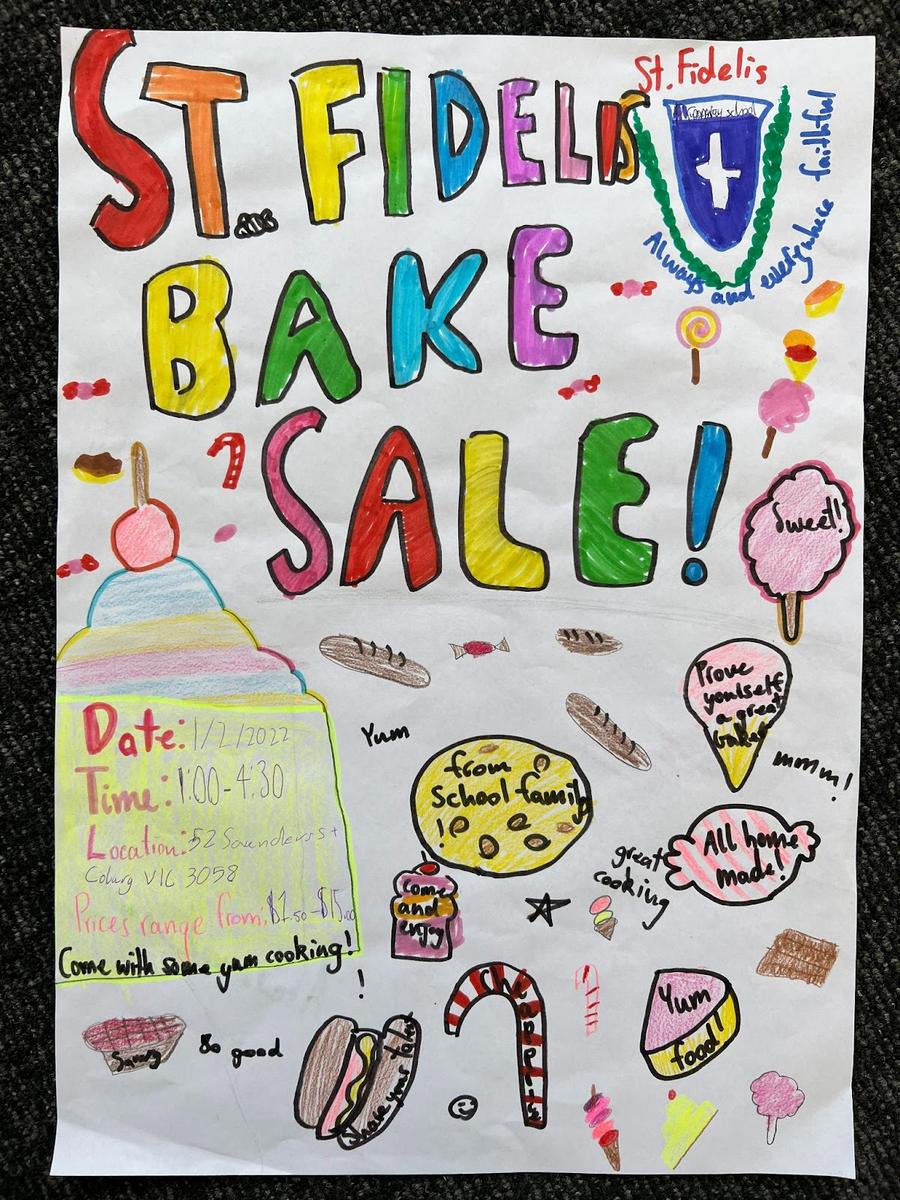 ST. FIDELIS
BAKE
SALE!
St. Fidelis
Always and everywhere faithful
Sweet!
Date: 1/2/2022
Time: 1:00-4:30
Location: 52 Saunders st
Coburg VIC 3058
Prices range from: $1.50-$15.00
Come with some yum cooking!
Yum
from
School family
!
Prove
yourself
a great
baker
mmm!
All home
made!
great
cooking
Come
and
enjoy
!
Yum
food!
Savory
So good
Share your talent